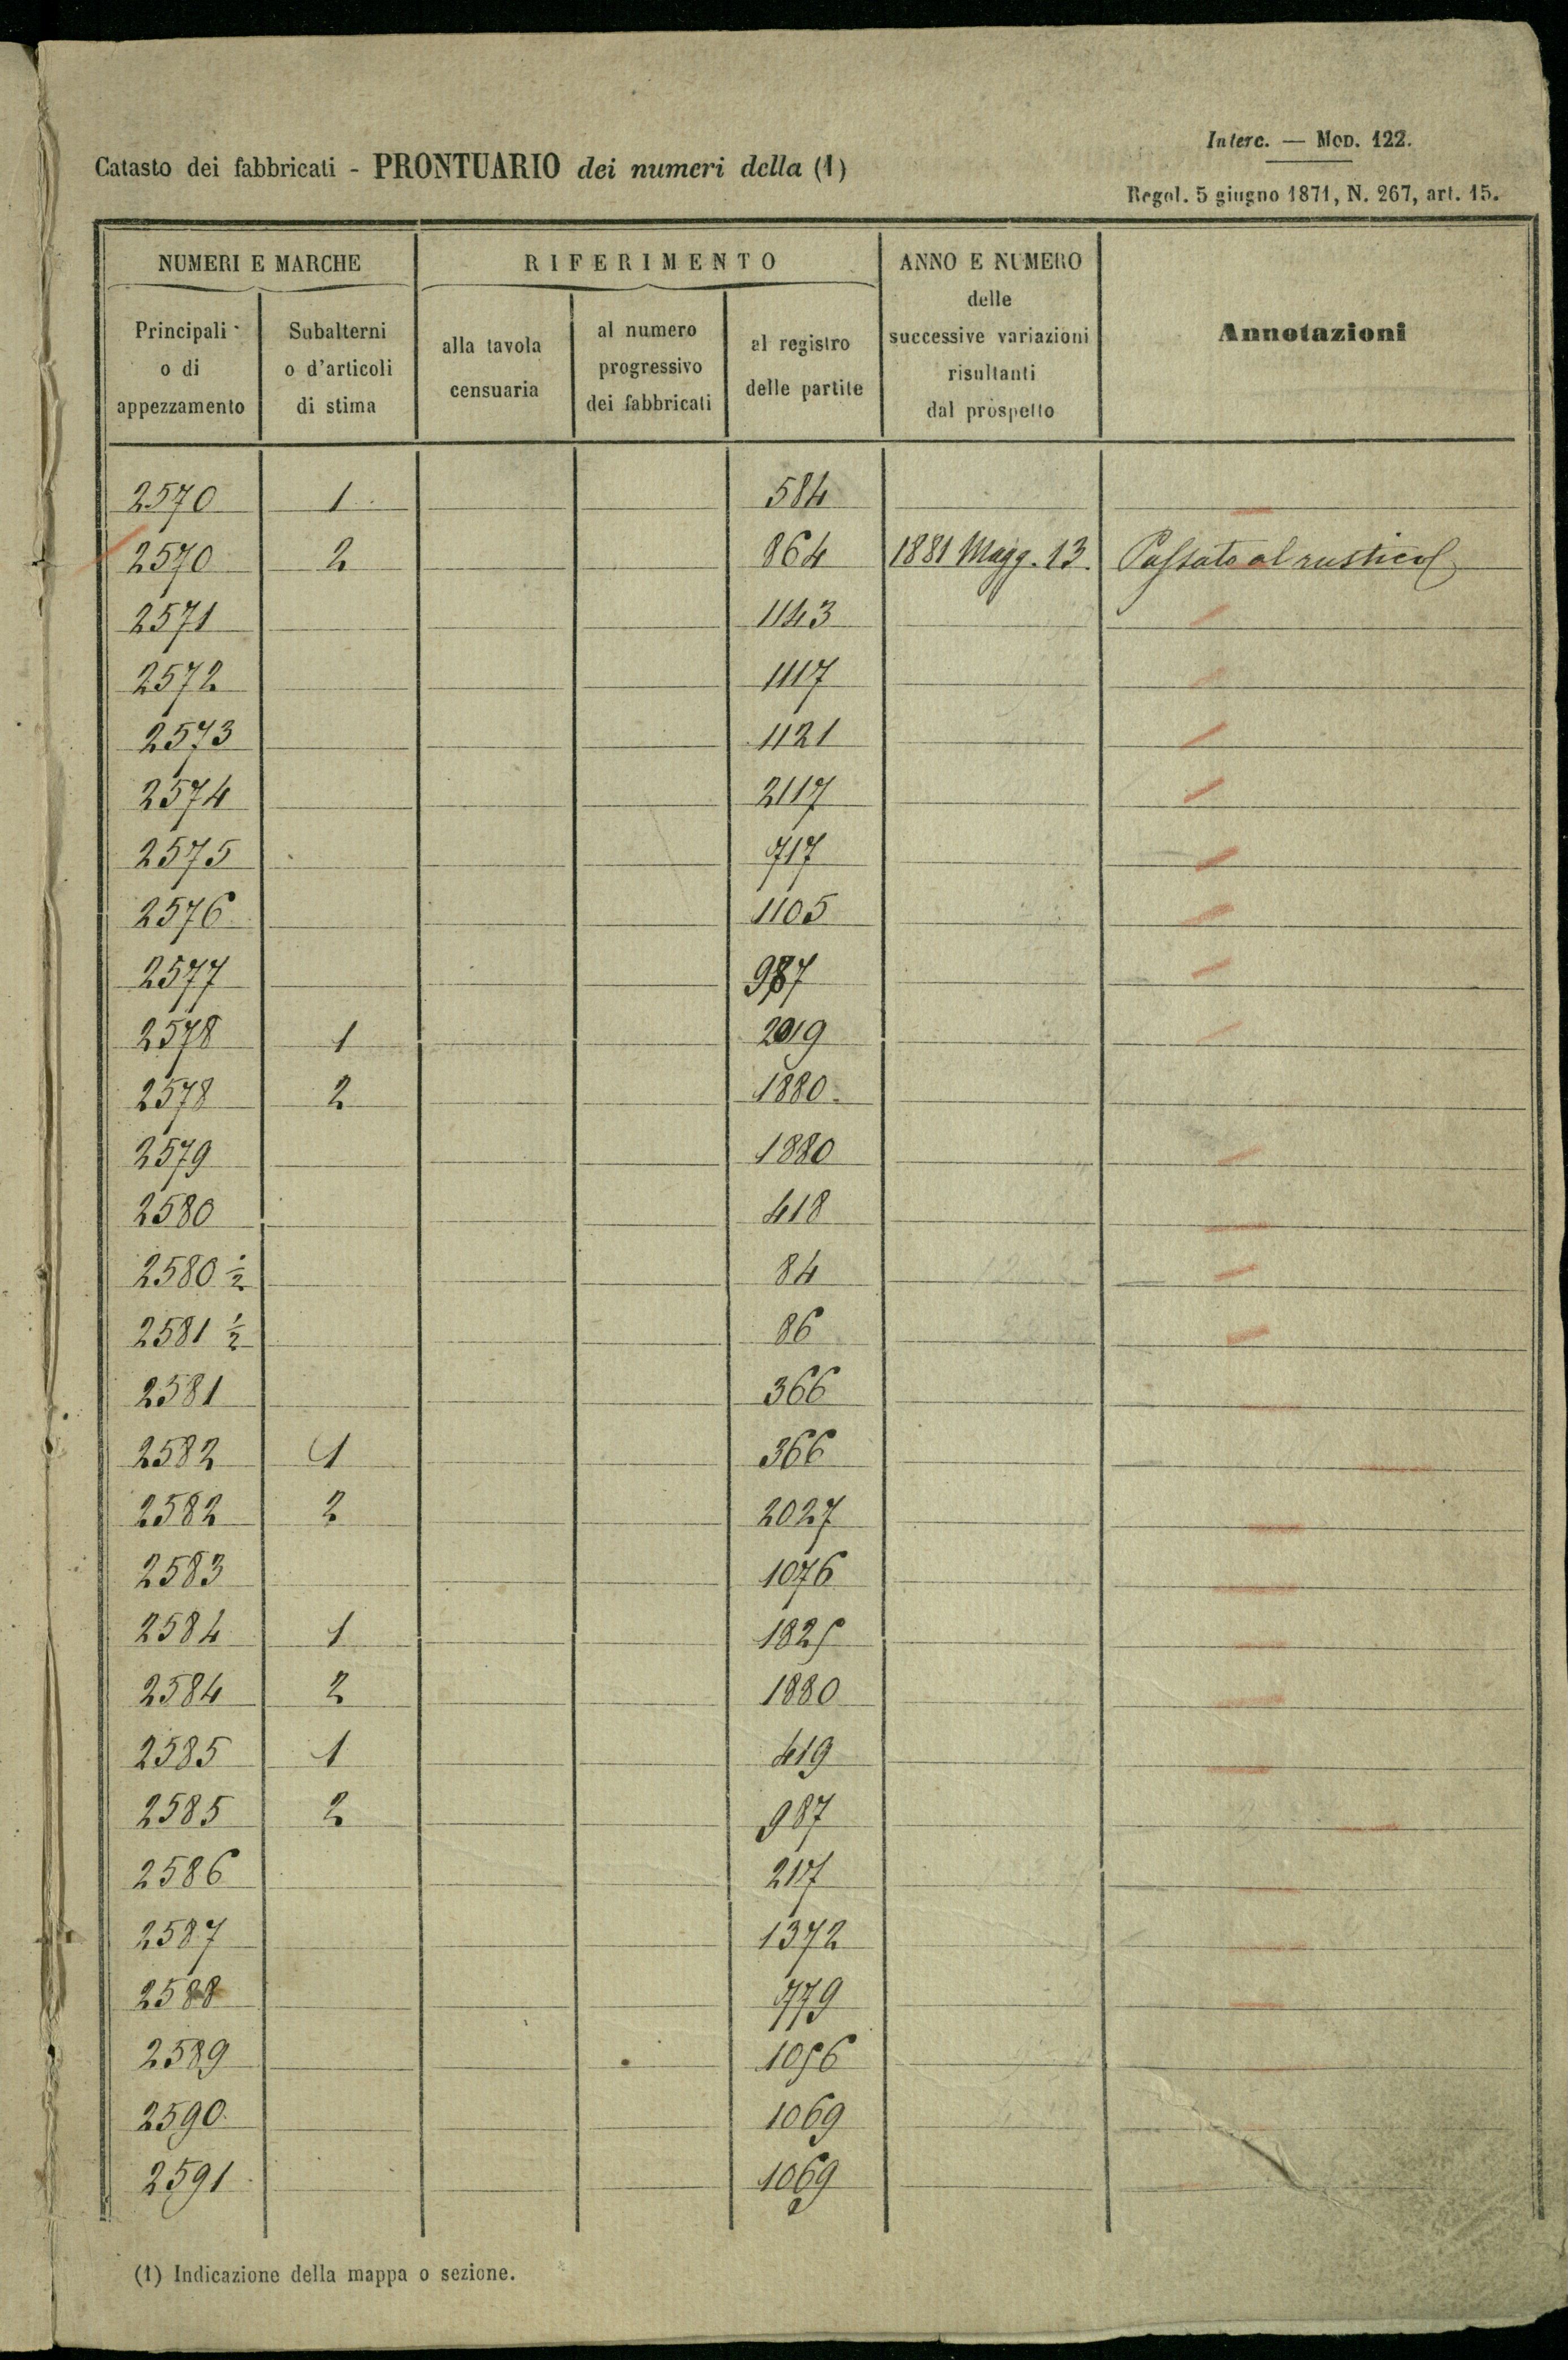 Interc. — Mod. 122.
Catasto dei fabbricati - PRONTUARIO dei numeri della (1)
Regol. 5 giugno 1871, N. 267, art. 15.
NUMERI E MARCHE
Principali o di appezzamento
Subalterni o d'articoli di stima
RIFERIMENTO
alla tavola censuaria
al numero progressivo dei fabbricati
al registro delle partite
ANNO E NUMERO delle successive variazioni risultanti dal prospetto
Annotazioni
2570 1 584
2570 2 864 1881 Magg. 13. Passato al rustico
2571 1143
2572 1117
2573 1121
2574 2117
2575 717
2576 1105
2577 987
2578 1 2019
2578 2 1880
2579 1880
2580 418
2580 ½ 84
2581 ½ 86
2581 366
2582 1 366
2582 2 2027
2583 1076
2584 1 1825
2584 2 1880
2585 1 419
2585 2 987
2586 217
2587 1372
2588 779
2589 1056
2590 1069
2591 1069
(1) Indicazione della mappa o sezione.